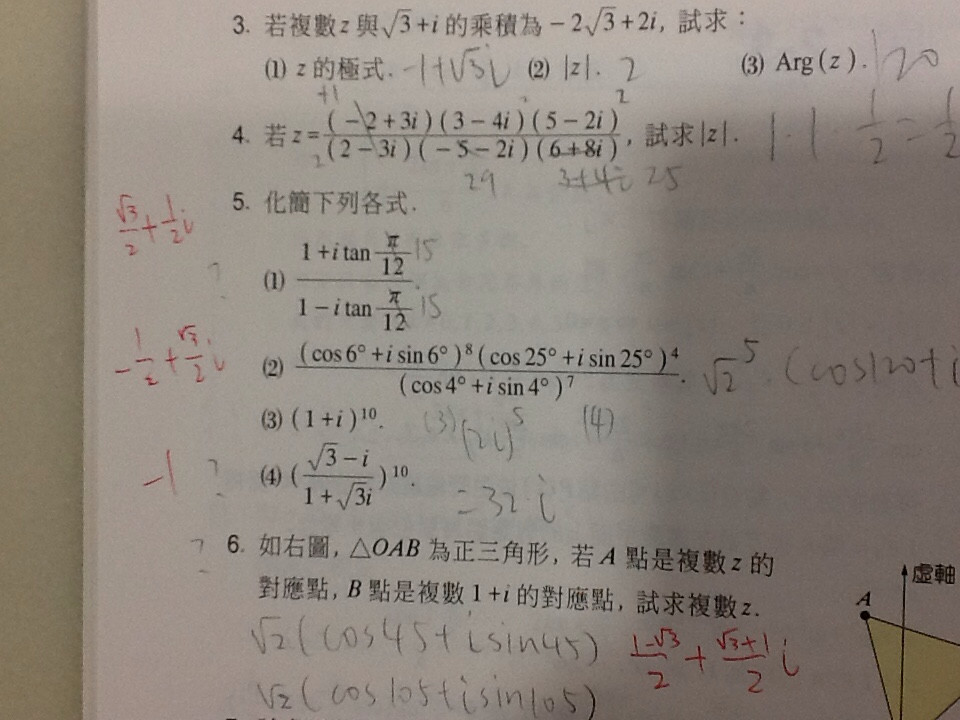 3. 若複數 z 與 √3+i 的乘積為 −2√3+2i, 試求：
(1) z 的極式. -1+√3i (2) |z|. 2 (3) Arg(z). 120
+1 i 2
4. 若 z= (−2+3i)(3−4i)(5−2i) / (2−3i)(−5−2i)(6+8i), 試求|z|. 1·1·1/2=1/2
2 29 3+4i 25
5. 化簡下列各式.
√3/2+1/2i
? (1) 1+i tan π/12 15 / 1−i tan π/12 15 .
-1/2+√3/2i (2) (cos6°+i sin6°)⁸(cos25°+i sin25°)⁴ / (cos4°+i sin4°)⁷ . √2⁵·(cos120+i
(3) (1+i)¹⁰. (3) (2i)⁵ (4)
-1 ? (4) (√3−i / 1+√3i)¹⁰. =32i
? 6. 如右圖, △OAB 為正三角形, 若 A 點是複數 z 的
對應點, B 點是複數 1+i 的對應點, 試求複數 z.
虛軸
A
√2(cos45+isin45) 1-√3/2 + √3+1/2 i
√2(cos105+isin105)